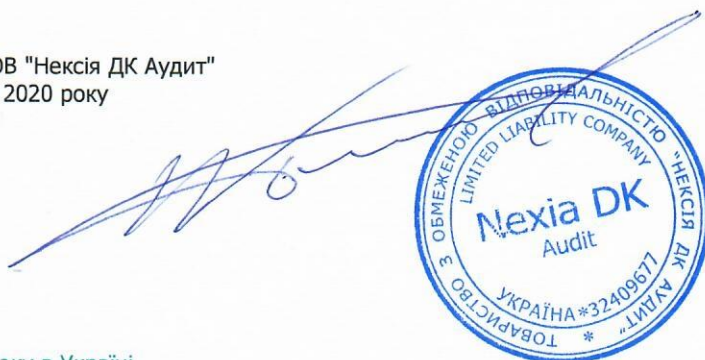 ОВ "Нексія ДК Аудит"
2020 року
ТОВАРИСТВО З ОБМЕЖЕНОЮ ВІДПОВІДАЛЬНІСТЮ "НЕКСІЯ ДК АУДИТ" *
LIMITED LIABILITY COMPANY
Nexia DK
Audit
УКРАЇНА*32409677
в Україні